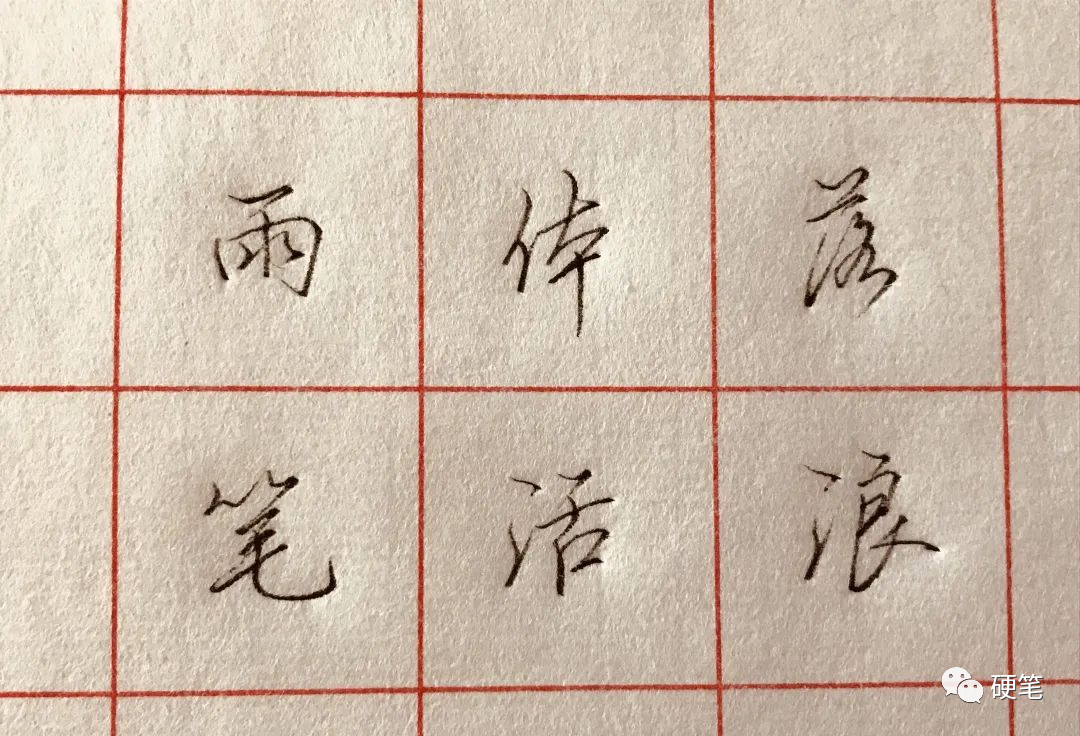 雨体落
笔活浪
硬笔